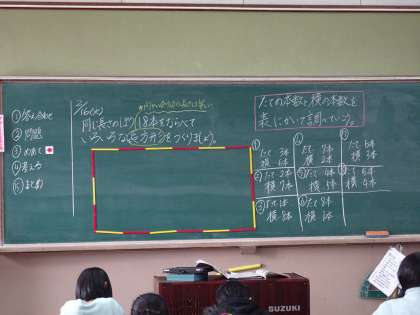 ①答え合わせ
②問題
③めあて
④考える
⑤まとめ
2/16(火)
同じ長さのぼう18本をならべて
いろいろな長方形をつくりましょう。
たての本数と横の本数を
表にかいて調べていこう。
① たて 3本
横 6本
② たて 2本
横 7本
③ たて 1本
横 8本
たて 7本
横 2本
たて 4本
横 5本
たて 8本
横 1本
たて 6本
横 3本
たて 5本
横 4本
SUZUKI